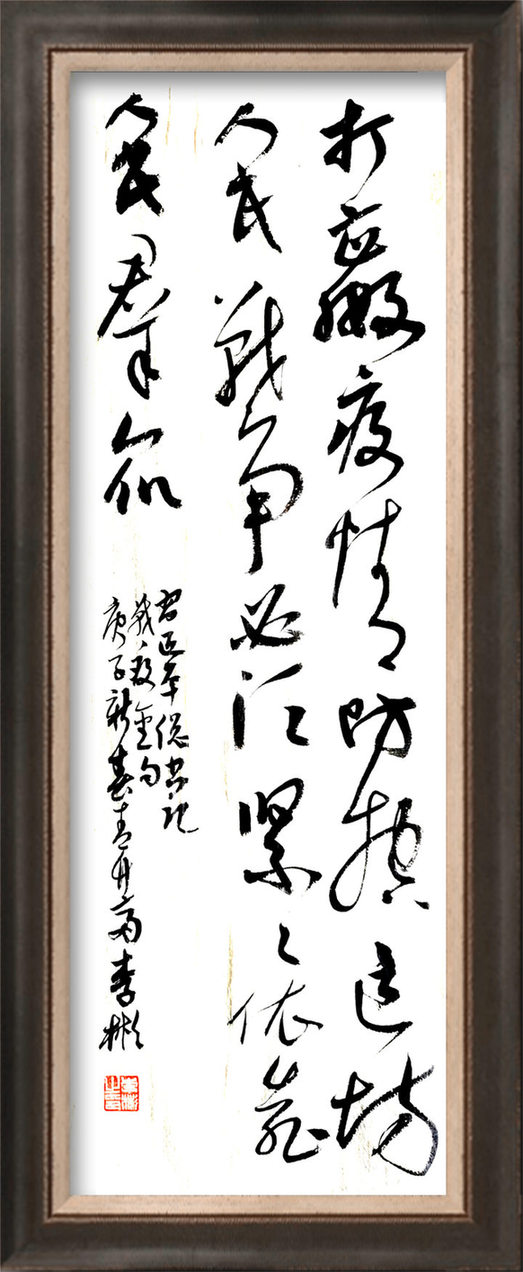 打赢疫情防控这场
人民战争必须紧紧依靠
人民群众
习近平总书记
战疫金句
庚子新春 李彬